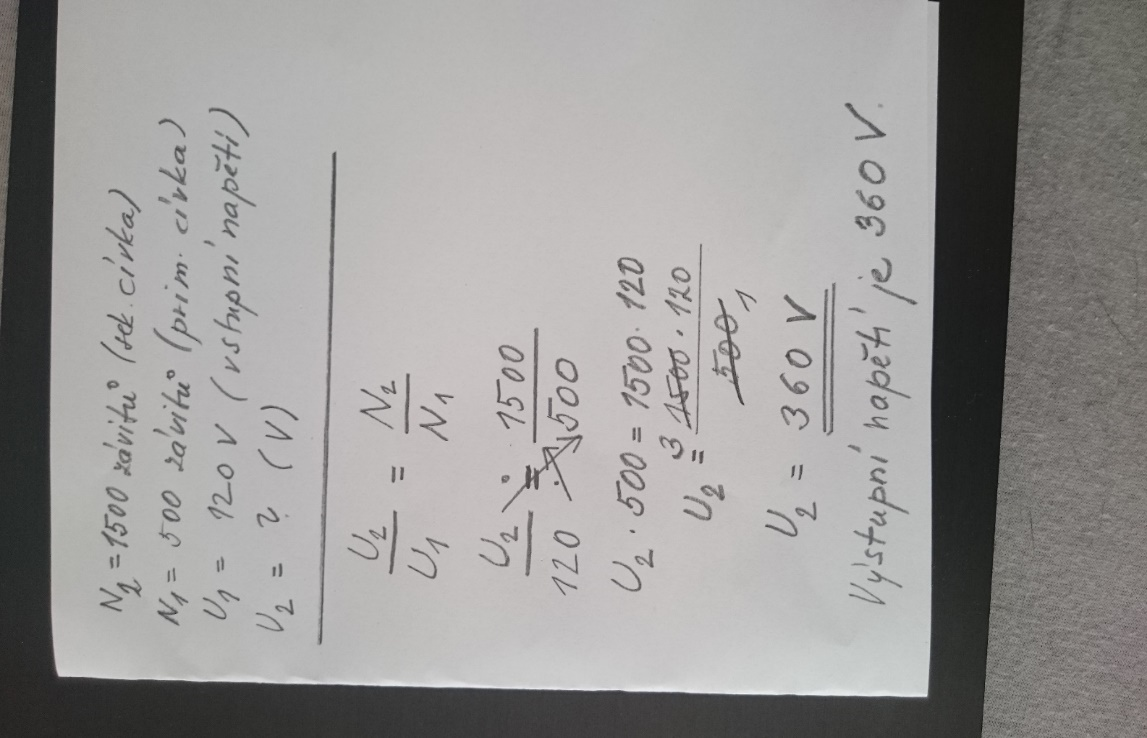 N₂ = 1500 závitů (sek. cívka)
N₁ = 500 závitů (prim. cívka)
U₁ = 120 V (vstupní napětí)
U₂ = ? (V)
U₂/U₁ = N₂/N₁
U₂/120 = 1500/500
U₂ · 500 = 1500 · 120
U₂ = 3 1500 · 120 / 500 1
U₂ = 360 V
Výstupní napětí je 360 V.